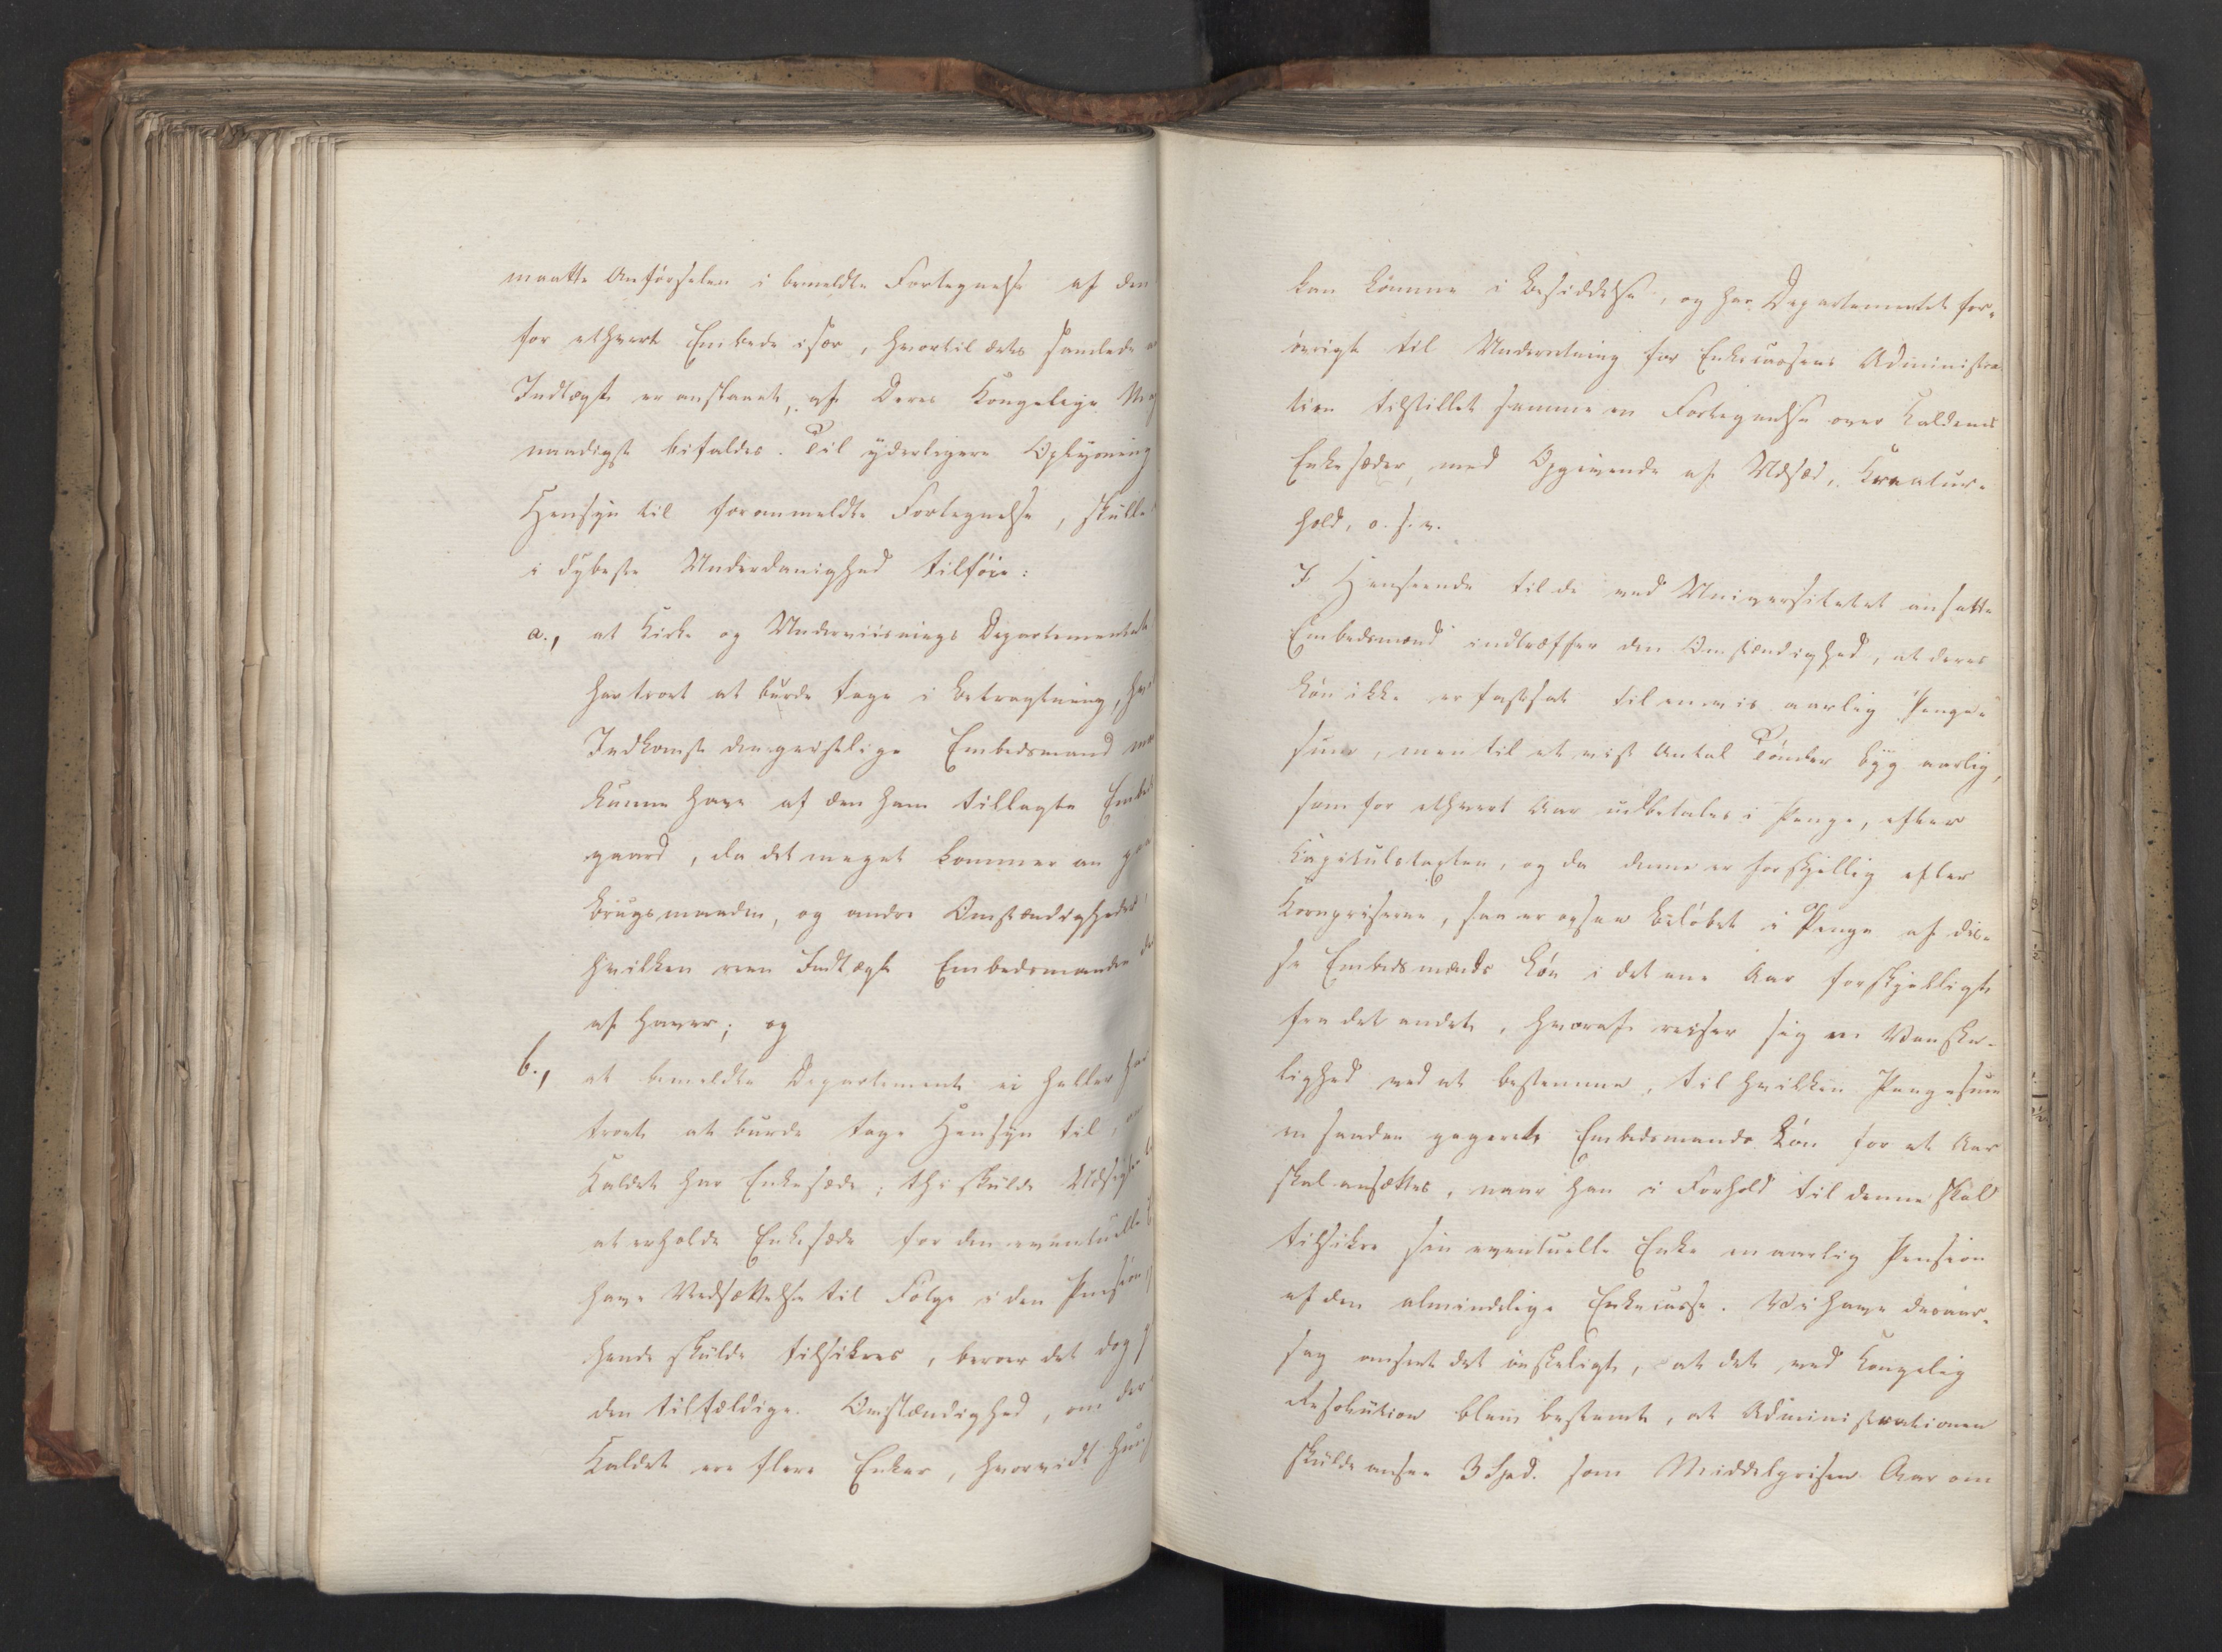 maatte Anførselen i bemeldte Fortegnelse af den
for ethvert Embede især, hvortil dets samlede
Indtægt er anslaaet, af Deres Kongelige Maj
naadigst bifaldes. Til yderligere Oplysning
Hensyn til foranmeldte Fortegnelse, skulle
i dybeste Underdanighed tilføie:
a., at Kirke og Underviisnings Departementet
har troet at burde tage i Betragtning,
Indkomst den geistlige Embedsmand
kunne have af den ham tillagte Embeds
gaard, da det meget kommer an paa
Brugsmaaden, og andre Omstændigheder
hvilken reen Indtægt Embedsmanden
af haver; og
b., at bemeldte Departement ei heller har
troet at burde tage Hensyn til, om
Kaldet har Enkesæde; thi skulde Udsigten
at erholde Enkesæde for den eventuelle
have Nedsættelse til Følge i den Pension
hende skulde tilsikres, beroer det dog
den tilfældige Omstændighed, om der
Kaldet ere flere Enker, hvorvidt hun
kan komme i Besiddelse, og har Departementet for-
øvrigt til Underretning for Enkecassens Administra
tion tilstillet samme en Fortegnelse over Kaldenes
Enkesæder, med Opgivende af Udsæd, Kreatur-
hold, o. s. v.
I Henseende til de ved Universitetet ansatte
Embedsmænd indtræffer den Omstændighed, at deres
Løn ikke er fastsat til en vis aarlig Penge-
sum, men til et vist Antal Tønder Byg aarlig,
som for ethvert Aar udbetales i Penge, efter
Kapitulstaxten, og da denne er forskjellig efter
Kornpriserne, saa er ogsaa Beløbet i Penge af dis-
se Embedsmænds Løn i det ene Aar forskjelligt
fra det andet, hvoraf reiser sig en Vanske-
lighed ved at bestemme, til hvilken Pengesum
en saadan gageret Embedsmands Løn for et Aar
skal ansættes, naar han i Forhold til denne skal
tilsikre sin eventuelle Enke en aarlig Pension
af den almindelige Enkecasse. Vi have desaar-
sag anseet det ønskeligt, at det ved Kongelig
Resolution blev bestemt, at Administrationen
skulde ansee 3 Spd. som Middelprisen Aar om